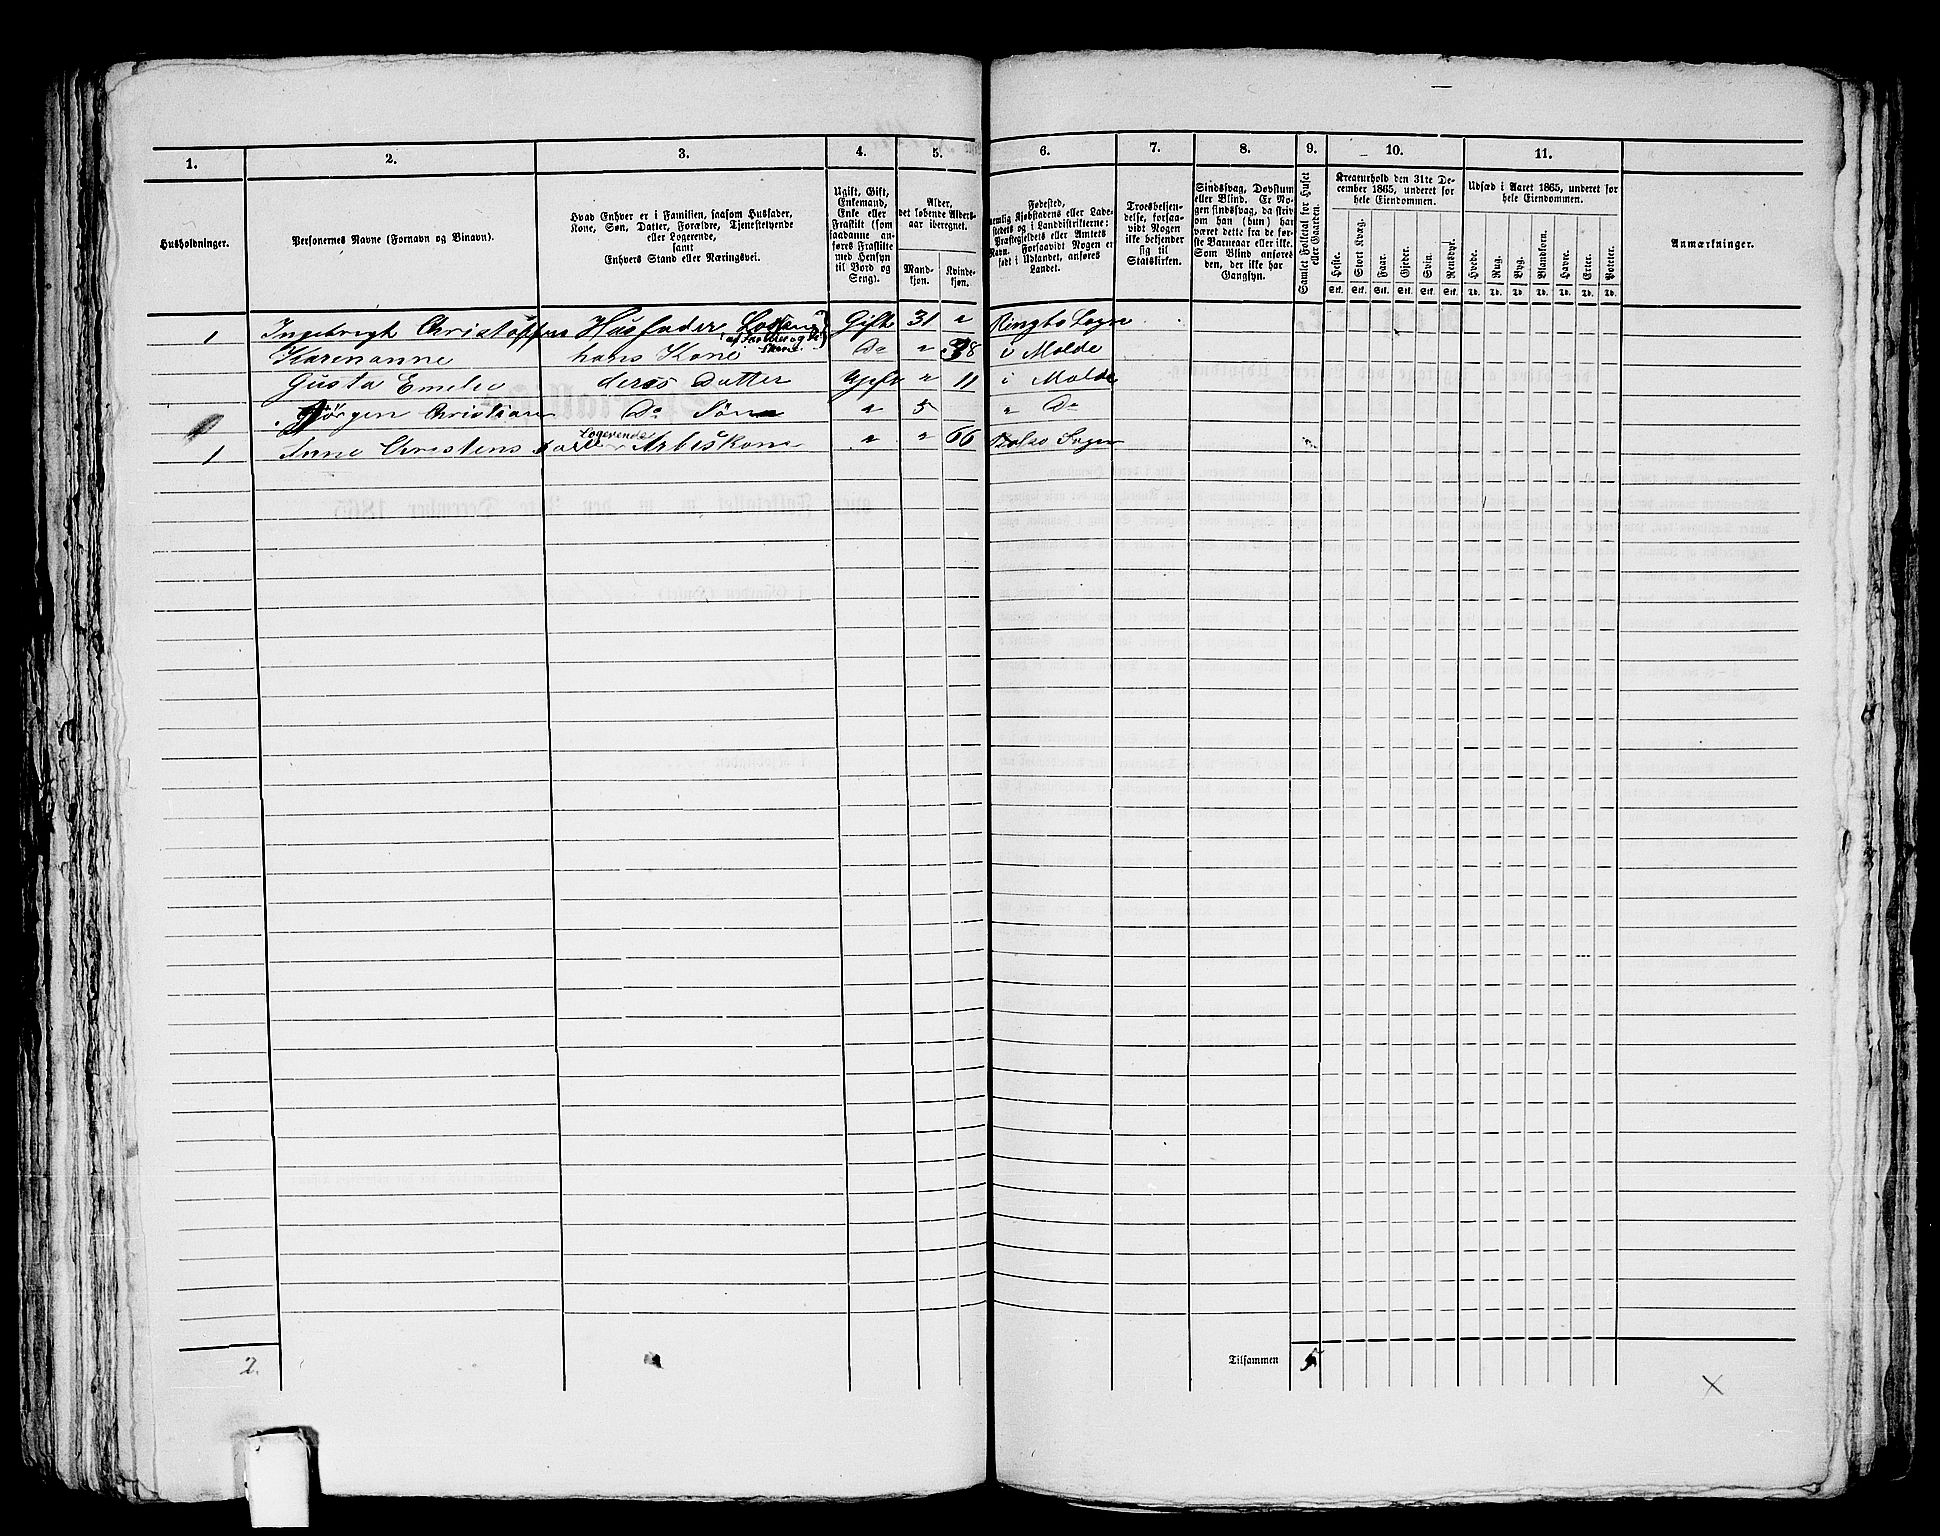 1. 2. 3. 4. 5. 6. 7. 8. 9. 10. 11.
Husholdninger.
Personernes Navne (Fornavn og Binavn).
Hvad Enhver er i Familien, saasom Husfader,
Kone, Søn, Datter, Forældre, Tjenestetyende
eller Logerende,
samt
Enhvers Stand eller Næringsvei.
Ugift, Gift,
Enkemand,
Enke eller
Fraskilt (som
saadanne an-
føres Fraskilte
med Hensyn
til Bord og
Seng).
Alder,
det løbende Alders-
aar iberegnet.
Mand-
kjøn.
Kvinde-
kjøn.
Fødested,
nemlig Kjøbstadens eller Lade-
stedets og i Landdistrikterne:
Præstegjeldets eller Amtets
Navn. Forsaavidt Nogen er
født i Udlandet, anføres
Landet.
Troesbekjen-
delse, forsaa-
vidt Nogen
ikke bekjender
sig til
Statskirken.
Sindssvag, Døvstum
eller Blind. Er No-
gen sindssvag, da skriv
om han (hun) har
været dette fra de før-
ste Barneaar eller ikke.
Som Blind anføres
den, der ikke har
Gangsyn.
Samlet Folketal for Huset
eller Gaarden.
Kreaturhold den 31te De-
cember 1865, underet for
hele Eiendommen.
Heste. Stort Kvæg. Faar. Gjeder. Svin. Rensdyr.
Stk. Stk. Stk. Stk. Stk. Stk.
Udsæd i Aaret 1865, underet for
hele Eiendommen.
Hvede. Rug. Byg. Blandkorn. Havre. Erter. Poteter.
Td. Td. Td. Td. Td. Td. Td.
Anmærkninger.
1 Ingebregt Christoffer Husfader Gift 31 " Sogn
Karenanne hans Kone Do " 38 i Molde
Gusta Emelie deres Datter Ugift " 11 i Molde
Jørgen Christian Do Søn " 5 " Do
Logerende
1 Anne Christens " " 66 Bolsø Sogn
2. Tilsammen 5
X